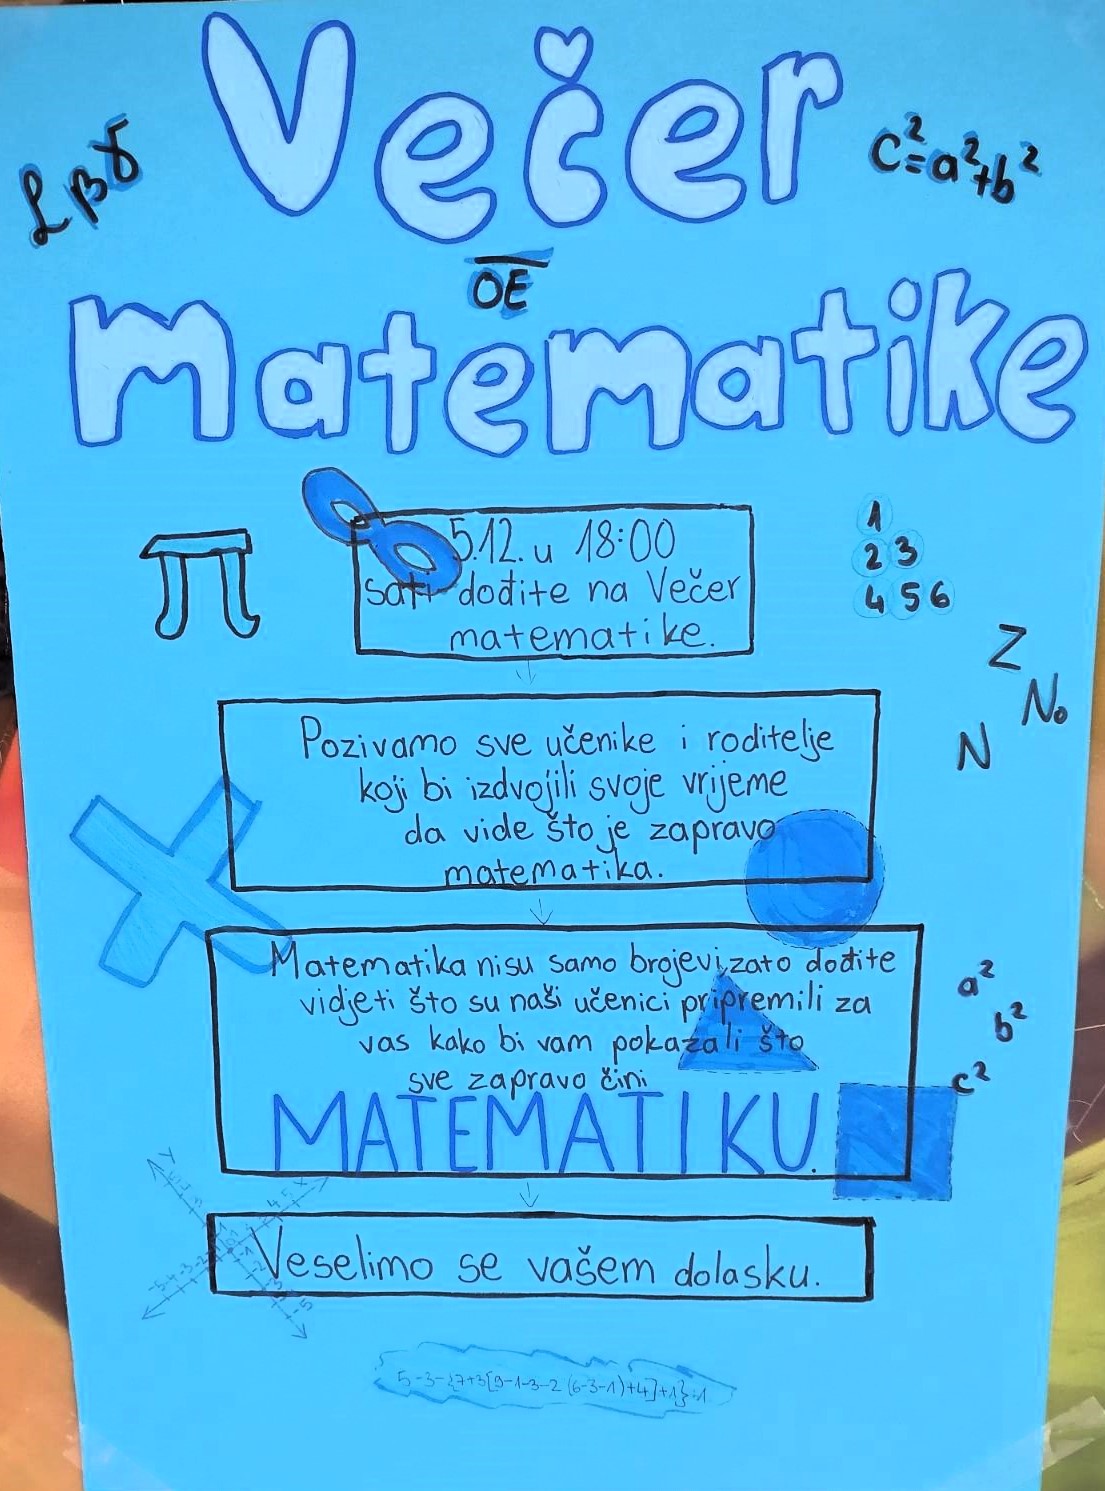 Večer
αβγ
c²=a²+b²
OE
matematike
5.12. u 18:00
sati dođite na Večer
matematike.
1
2 3
4 5 6
Z
N₀
N
Pozivamo sve učenike i roditelje
koji bi izdvojili svoje vrijeme
da vide što je zapravo
matematika.
Matematika nisu samo brojevi, zato dođite
vidjeti što su naši učenici pripremili za
vas kako bi vam pokazali što
sve zapravo čini
MATEMATIKU.
a²
b²
c²
Veselimo se vašem dolasku.
5-3-{7+3[9-1-3-2(6-3-1)+4]+1}:1